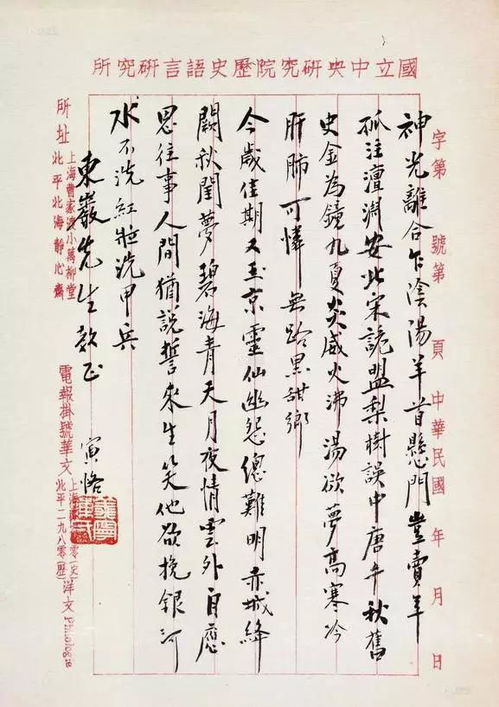 國立中央研究院歷史語言研究所
字第 號第 頁 中華民國 年 月 日
神光離合乍陰陽羊首懸門豈賣羊
孤注澶淵安北宋詭盟梨樹誤中唐千秋舊
史金為鏡九夏炎威火沸湯欲夢高寒冷
肝肺可憐無路黑甜鄉
今歲佳期又玉京靈仙幽怨總難明赤城絳
闕秋閨夢碧海青天月夜情雲外自應
思往事人間猶說誓來生笑他欲挽銀河
水不洗紅妝洗甲兵
東巖先生教正
寅恪
所址
上海曹家渡小萬柳堂
北平北海靜心齋
電報掛號華文
上海 零(史)
北平二九八零(歷)
洋文 Philologie